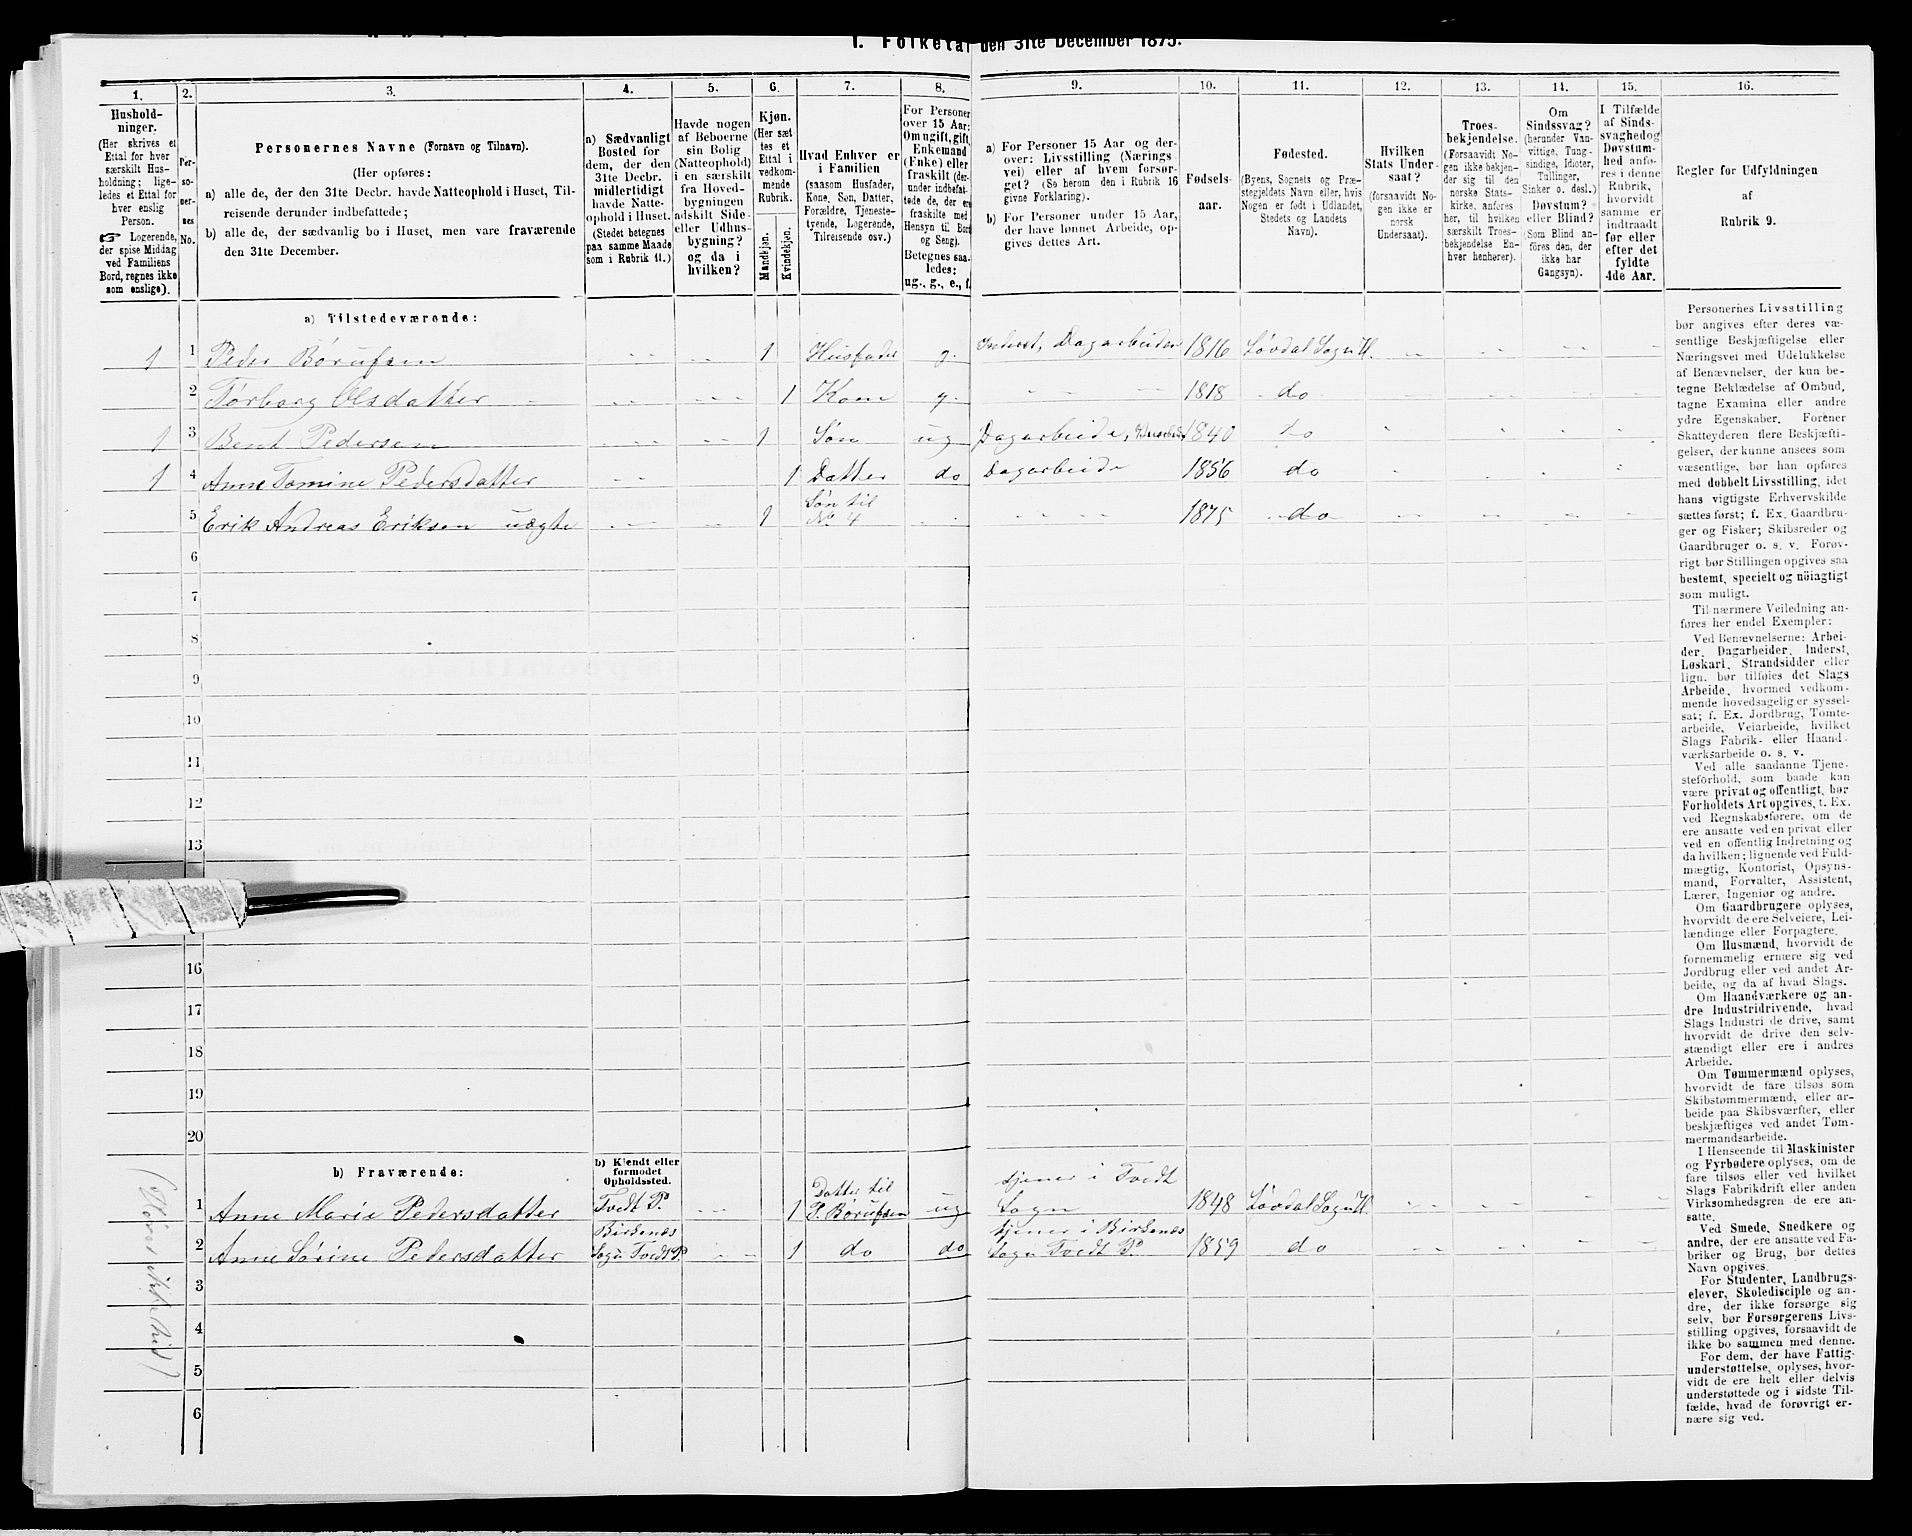 I. Folketal den 31te December 1875.
1. 2. 3. 4. 5. 6. 7. 8. 9. 10. 11. 12. 13. 14. 15. 16.
Hushold-
ninger.
(Her skrives et
Ettal for hver
særskilt Hus-
holdning; lige-
ledes et Ettal for
hver enslig
Person.
☞ Logerende,
der spise Middag
ved Familiens
Bord, regnes ikke
som enslige).
Per-
so-
ner-
nes
No.
Personernes Navne (Fornavn og Tilnavn).
(Her opføres:
a) alle de, der den 31te Decbr. havde Natteophold i Huset, Til-
reisende derunder indbefattede;
b) alle de, der sædvanlig bo i Huset, men vare fraværende
den 31te December.
a) Sædvanligt
Bosted for
dem, der den
31te Decbr.
midlertidigt
havde Natte-
ophold i Huset.
(Stedet betegnes
paa samme Maade
som i Rubrik 11.)
Havde nogen
af Beboerne
sin Bolig
(Natteophold)
i en særskilt
fra Hoved-
bygningen
adskilt Side-
eller Udhus-
bygning?
og da i
hvilken?
Kjøn.
(Her sæt
tes et
Ettal i
vedkom-
mende
Rubrik.
Mandkjøn.
Kvindekjøn.
Hvad Enhver er
i Familien
(saasom Husfader,
Kone, Søn, Datter,
Forældre, Tjeneste-
tyende, Logerende,
Tilreisende osv.)
For Personer
over 15 Aar:
Om ugift, gift,
Enkemand
(Enke) eller
fraskilt (der-
under indbefat-
tede de, der ere
fraskilte med
Hensyn til Bord
og Seng).
Betegnes saa-
ledes:
ug., g., e., f.
a) For Personer 15 Aar og der-
over: Livsstilling (Nærings-
vei) eller af hvem forsør-
get? (Se herom den i Rubrik 16
givne Forklaring).
b) For Personer under 15 Aar,
der have lønnet Arbeide, op-
gives dettes Art.
Fødsels-
aar.
Fødested.
(Byens, Sognets og Præ-
stegjeldets Navn eller, hvis
Nogen er født i Udlandet,
Stedets og Landets
Navn).
Hvilken
Stats Under-
saat?
(forsaavidt No-
gen ikke er
norsk
Undersaat).
Troes-
bekjendelse.
(Forsaavidt No-
gen ikke bekjen-
der sig til den
norske Stats-
kirke, anføres
her, til hvilken
særskilt Troes-
bekjendelse En-
hver henhører).
Om
Sindssvag?
(herunder Van-
vittige, Tung-
sindige, Idioter,
Tullinger,
Sinker o. desl.)
Døvstum?
eller Blind?
(Som Blind an-
føres den, der
ikke har
Gangsyn).
I Tilfælde
af Sinds-
svaghed og
Døvstum-
hed anfø-
res i denne
Rubrik,
hvorvidt
samme er
indtraadt
før eller
efter det
fyldte
4de Aar.
Regler for Udfyldningen
af
Rubrik 9.
a) Tilstedeværende:
1 1 Peder Børufsen 1 Husfader g. Inderst, Dagarbeider 1816 Løvdal Sogn H.
2 Torborg Olsdatter 1 Kone g. 1818 do
1 3 Bent Pedersen 1 Søn ug Dagarbeide, 1840 do
1 4 Anne Tomine Pedersdatter 1 Datter do Dagarbeide 1856 do
5 Erik Andreas Eriksen uægte 1 Søn til No 4 1875 do
6
7
8
9
10
11
12
13
16
17
18
19
20
b) Fraværende:
b) Kjendt eller
formodet
Opholdssted.
1 Anne Marie Pedersdatter Tvedt P. 1 Datter til P. Børufsen ug tjener i Tvedt Sogn 1848 Løvdal Sogn H.
2 Anne Sørine Pedersdatter Birkenæs Sogn Tvedt P. 1 do do tjener i Birkenæs Sogn Tvedt P. 1859 do
3
4
5
6
Personernes Livsstilling
bør angives efter deres væ-
sentlige Beskjæftigelse eller
Næringsvei med Udelukkelse
af Benævnelser, der kun be-
tegne Beklædelse af Ombud,
tagne Examina eller andre
ydre Egenskaber. Forener
Skatteyderen flere Beskjæfti-
gelser, der kunne ansees som
væsentlige, bør han opføres
med dobbelt Livsstilling, idet
hans vigtigste Erhvervskilde
sættes først; f. Ex. Gaardbru-
ger og Fisker; Skibsreder og
Gaardbruger o. s. v. Forøv-
rigt bør Stillingen opgives saa
bestemt, specielt og nöiagtigt
som muligt.
Til nærmere Veiledning an-
føres her endel Exempler:
Ved Benævnelserne: Arbei-
der, Dagarbeider, Inderst,
Løskarl, Strandsidder eller
lign. bør tilføies det Slags
Arbeide, hvormed vedkom-
mende hovedsagelig er syssel-
sat; f. Ex. Jordbrug, Tomte-
arbeide, Veiarbeide, hvilket
Slags Fabrik- eller Haand-
værksarbeide o. s. v.
Ved alle saadanne Tjene-
steforhold, som baade kan
være privat og offentligt, bør
Forholdets Art opgives, t. Ex.
ved Regnskabsførere, om de
ere ansatte ved en privat eller
ved en offentlig Indretning og
da hvilken; lignende ved Fuld-
mægtig, Kontorist, Opsyns-
mand, Forvalter, Assistent,
Lærer, Ingeniør og andre.
Om Gaardbrugere oplyses,
hvorvidt de ere Selveiere, Lei-
lændinge eller Forpagtere.
Om Husmænd, hvorvidt de
fornemmelig ernære sig ved
Jordbrug eller ved andet Ar-
beide, og da af hvad Slags.
Om Haandværkere og an-
dre Industridrivende, hvad
Slags Industri de drive, samt
hvorvidt de drive den selv-
stændigt eller ere i andres
Arbeide.
Om Tømmermænd oplyses,
hvorvidt de fare tilsøs som
Skibstømmermænd, eller ar-
beide paa Skibsværfter, eller
beskjæftiges ved andet Tøm-
mermandsarbeide.
I Henseende til Maskinister
og Fyrbødere oplyses, om de
fare tilsøs eller ved hvilket
Slags Fabrikdrift eller anden
Virksomhedsgren de ere an-
satte.
Ved Smede, Snedkere og
andre, der ere ansatte ved Fa-
briker og Brug, bør dettes
Navn opgives.
For Studenter, Landbrugs-
elever, Skoledisciple og an-
dre, der ikke forsørge sig
selv, bør Forsørgerens Livs-
stilling opgives, forsaavidt de
ikke bo sammen med denne.
For dem, der have Fattig-
understøttelse, oplyses, hvor-
vidt de ere helt eller delvis
understøttede og i sidste Til-
fælde, hvad de forøvrigt er-
nære sig ved.